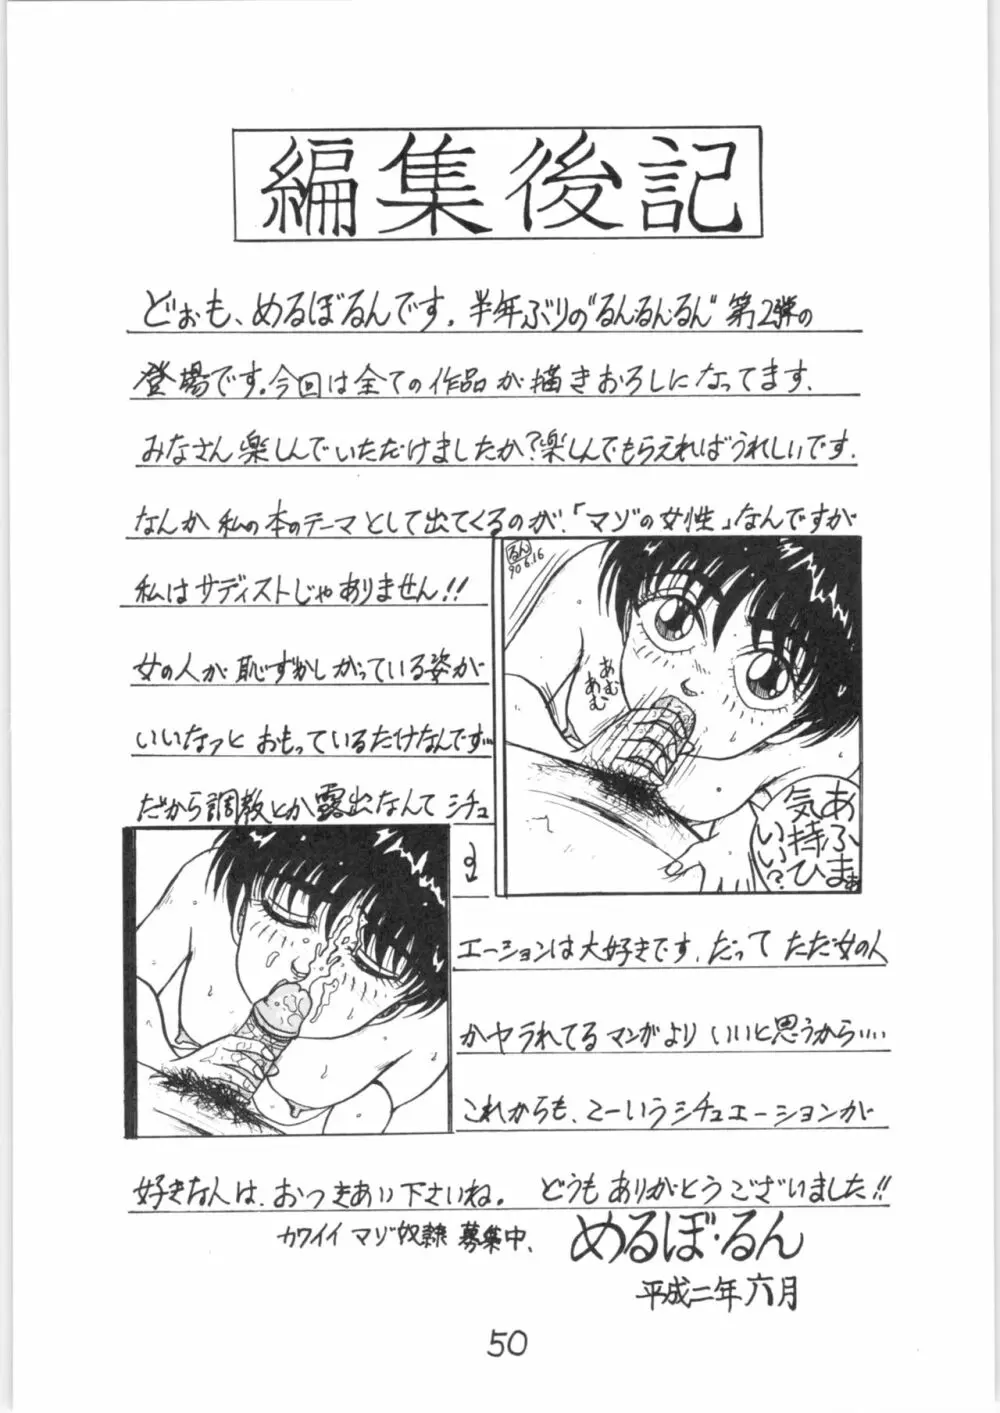 編集後記
どぉも、めるぼるんです。半年ぶりの"るん・るん・るん"第2弾の
登場です。今回は全ての作品が描きおろしになってます.
みなさん楽しんでいただけましたか?楽しんでもらえればうれしいです.
なんか私の本のテーマとして出てくるのが、「マゾの女性」なんですが
私はサディストじゃありません!!
女の人が恥ずかしがっている姿が
いいなァとおもっているだけなんです…
だから調教とか露出なんてシチュ
エーションは大好きです.だってただ女の人
がヤラれてるマンガよりいいと思うから……
これからも、こーいうシチュエーションが
好きな人は、おつきあい下さいね。どうもありがとうございました!!
カワイイマゾ奴隷募集中、
めるぼ・るん
平成二年六月
るん
90.6.16
あむ
あむ
あふまぁ
気持ひ
いい?
50